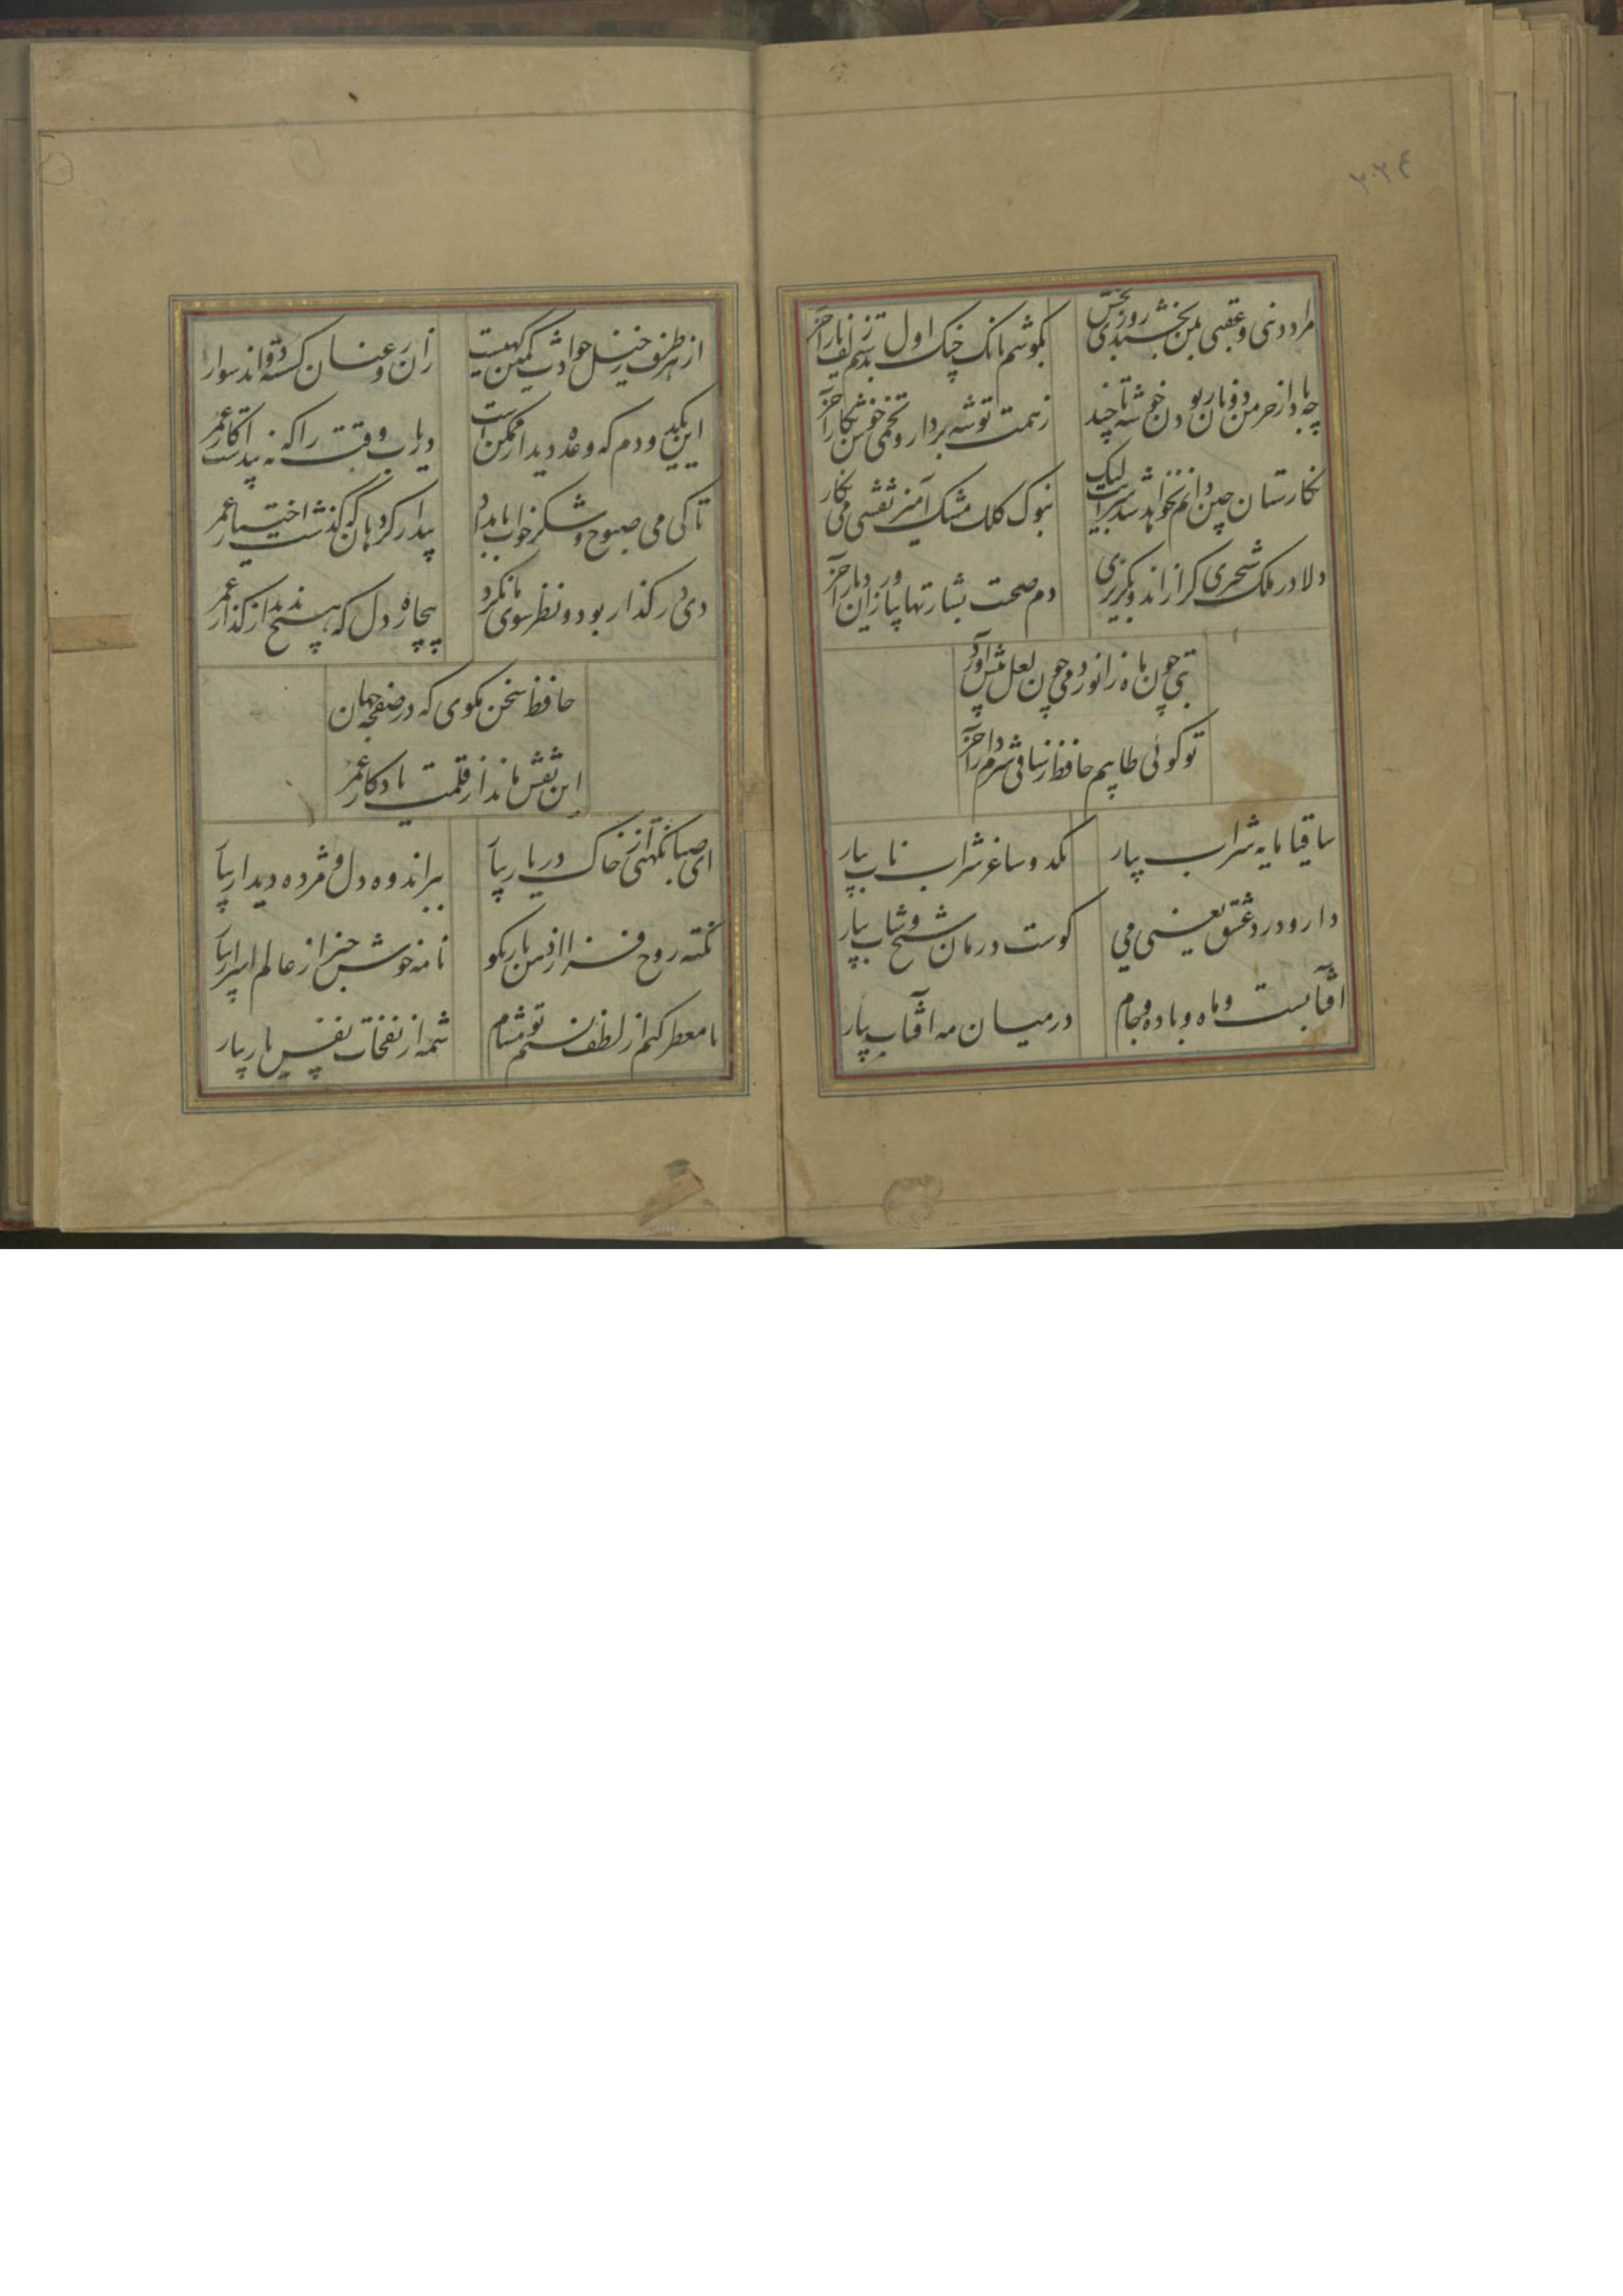 ۳۰۲٤
مراد دنیی و عقبی بمن بخشید روزی بخش
بگوشم بانگ چنگ اول بدستم زلف یار آخر
چو باد از خرمن دونان ربودن خوشه تا چند
ز همت توشه بردار و تخمی خوش بکار آخر
نکارستان چین دانم نخواهد شد سرایت لیک
بنوک کلک مشک آمیز نقشی می نکار آخر
دلا در ملک شبخیزی کر از اندوه نکریزی
دم صحت بشارتها بیارد زان دیار آخر
بتی چون ماه زانو زد می چون لعل پیش آورد
تو کوئی تایبم حافظ ز ساقی شرم دار آخر
ساقیا مایه شراب بیار
یکدو ساغر شراب ناب بیار
دارو درد عشق یعنی می
کوست درمان شیخ و شاب بیار
آفتابست و ماه و باده و جام
در میان مه آفتاب بیار
از هر طرف ز خیل حوادث کمین کهیست
زان رو عنان کسسته دواند سوار
این یکدو دم که وعده دیدار ممکن است
دریاب وقت را که نه پیداست کار عمر
تا کی می صبوح و شکر خواب بامداد
بیدار کرد هان که کذشت اختیار عمر
دی در کذار بود و نظر سوی ما نکرد
بیچاره دل که هیچ ندید از کذار عمر
حافظ سخن بکوی که در صفحه جهان
این نقش ماند از قلمت یادکار عمر
ای صبا نکهتی از خاک در یار بیار
ببر اندوه دل و مژده دیدار بیار
نکته روح فزا از دهن یار بکو
نامه خوش خبر از عالم اسرار بیار
تا معطر کنم از لطف نسیم تو مشام
شمه از نفحات نفس یار بیار